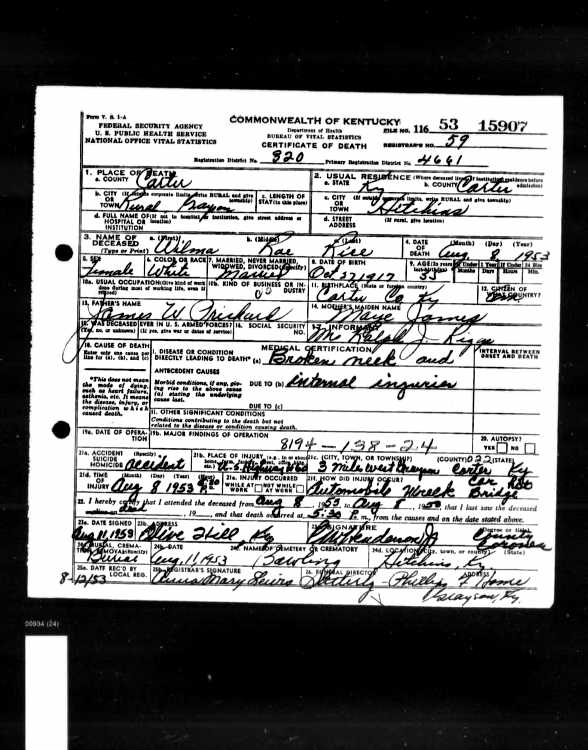 Form V. S. 1-A
FEDERAL SECURITY AGENCY
U. S. PUBLIC HEALTH SERVICE
NATIONAL OFFICE VITAL STATISTICS
COMMONWEALTH OF KENTUCKY
Department of Health
BUREAU OF VITAL STATISTICS
CERTIFICATE OF DEATH
FILE NO. 116 53 15907
REGISTRAR'S NO. 59
Registration District No. 820 Primary Registration District No. 4661
1. PLACE OF DEATH
a. COUNTY Carter
2. USUAL RESIDENCE (Where deceased lived. If institution: residence before admission)
a. STATE Ky b. COUNTY Carter
b. CITY (If outside corporate limits, write RURAL and give township)
OR TOWN Rural Grayson
c. LENGTH OF STAY (in this place)
c. CITY (If outside corporate limits, write RURAL and give township)
OR TOWN Hitchins
d. FULL NAME OF (If not in hospital or institution, give street address or location)
HOSPITAL OR INSTITUTION
d. STREET ADDRESS (If rural, give location)
3. NAME OF DECEASED (Type or Print)
a. (First) Wilma b. (Middle) Rae c. (Last) Rice
4. DATE OF DEATH (Month) (Day) (Year) Aug. 8 1953
5. SEX Female
6. COLOR OR RACE White
7. MARRIED, NEVER MARRIED, WIDOWED, DIVORCED (Specify) Married
8. DATE OF BIRTH Oct 27 1917
9. AGE (In years last birthday) 35
If Under 1 Year Months Days
If Under 24 Hrs Hours Min
10a. USUAL OCCUPATION (Give kind of work done during most of working life, even if retired)
10b. KIND OF BUSINESS OR INDUSTRY
11. BIRTHPLACE (State or foreign country) Carter Co Ky
12. CITIZEN OF WHAT COUNTRY?
13. FATHER'S NAME James W. Prichard
14. MOTHER'S MAIDEN NAME James
15. WAS DECEASED EVER IN U. S. ARMED FORCES? (Yes, no, or unknown) (If yes, give war or dates of service)
16. SOCIAL SECURITY NO.
17. INFORMANT Mr Ralph J.
18. CAUSE OF DEATH
Enter only one cause per line for (a), (b), and (c)
MEDICAL CERTIFICATION
INTERVAL BETWEEN ONSET AND DEATH
1. DISEASE OR CONDITION DIRECTLY LEADING TO DEATH* (a) Broken neck and
*This does not mean the mode of dying, such as heart failure, asthenia, etc. It means the disease, injury, or complication which caused death.
ANTECEDENT CAUSES
Morbid conditions, if any, giving rise to the above cause (a) stating the underlying cause last.
DUE TO (b) internal injuries
DUE TO (c)
11. OTHER SIGNIFICANT CONDITIONS
Conditions contributing to the death but not related to the disease or condition causing death.
19a. DATE OF OPERATION
19b. MAJOR FINDINGS OF OPERATION
8194-138-24
20. AUTOPSY?
YES NO
21a. ACCIDENT SUICIDE HOMICIDE (Specify) accident
21b. PLACE OF INJURY (e.g., in or about home, farm, factory, street, office bldg., etc.) U.S. Highway #60
21c. (CITY, TOWN, OR TOWNSHIP) (COUNTY) 022 (STATE)
3 mile west Grayson Carter Ky
21d. TIME OF INJURY (Month) (Day) (Year) (Hour) Aug 8 1953
21e. INJURY OCCURRED WHILE AT WORK NOT WHILE AT WORK
21f. HOW DID INJURY OCCUR? Automobile Wreck Car Bridge
22. I hereby certify that I attended the deceased from Aug 8, 1953, to Aug 8, 1953, that I last saw the deceased
, 19 , and that death occurred at 5:30 P m., from the causes and on the date stated above.
23a. DATE SIGNED Aug 11, 1953
23b. ADDRESS Olive Hill Ky
23c. SIGNATURE County Coroner
24a. BURIAL, CREMATION, REMOVAL (Specify) Burial
24b. DATE Aug. 11, 1953
24c. NAME OF CEMETERY OR CREMATORY
24d. LOCATION (City, town, or county) (State) Hitchins, Ky.
25a. DATE REC'D BY LOCAL REG. 8-12/53
25b. REGISTRAR'S SIGNATURE Mary Lewis
26. FUNERAL DIRECTOR ADDRESS
Phillips F. Home
Grayson, Ky.
00934 (24)